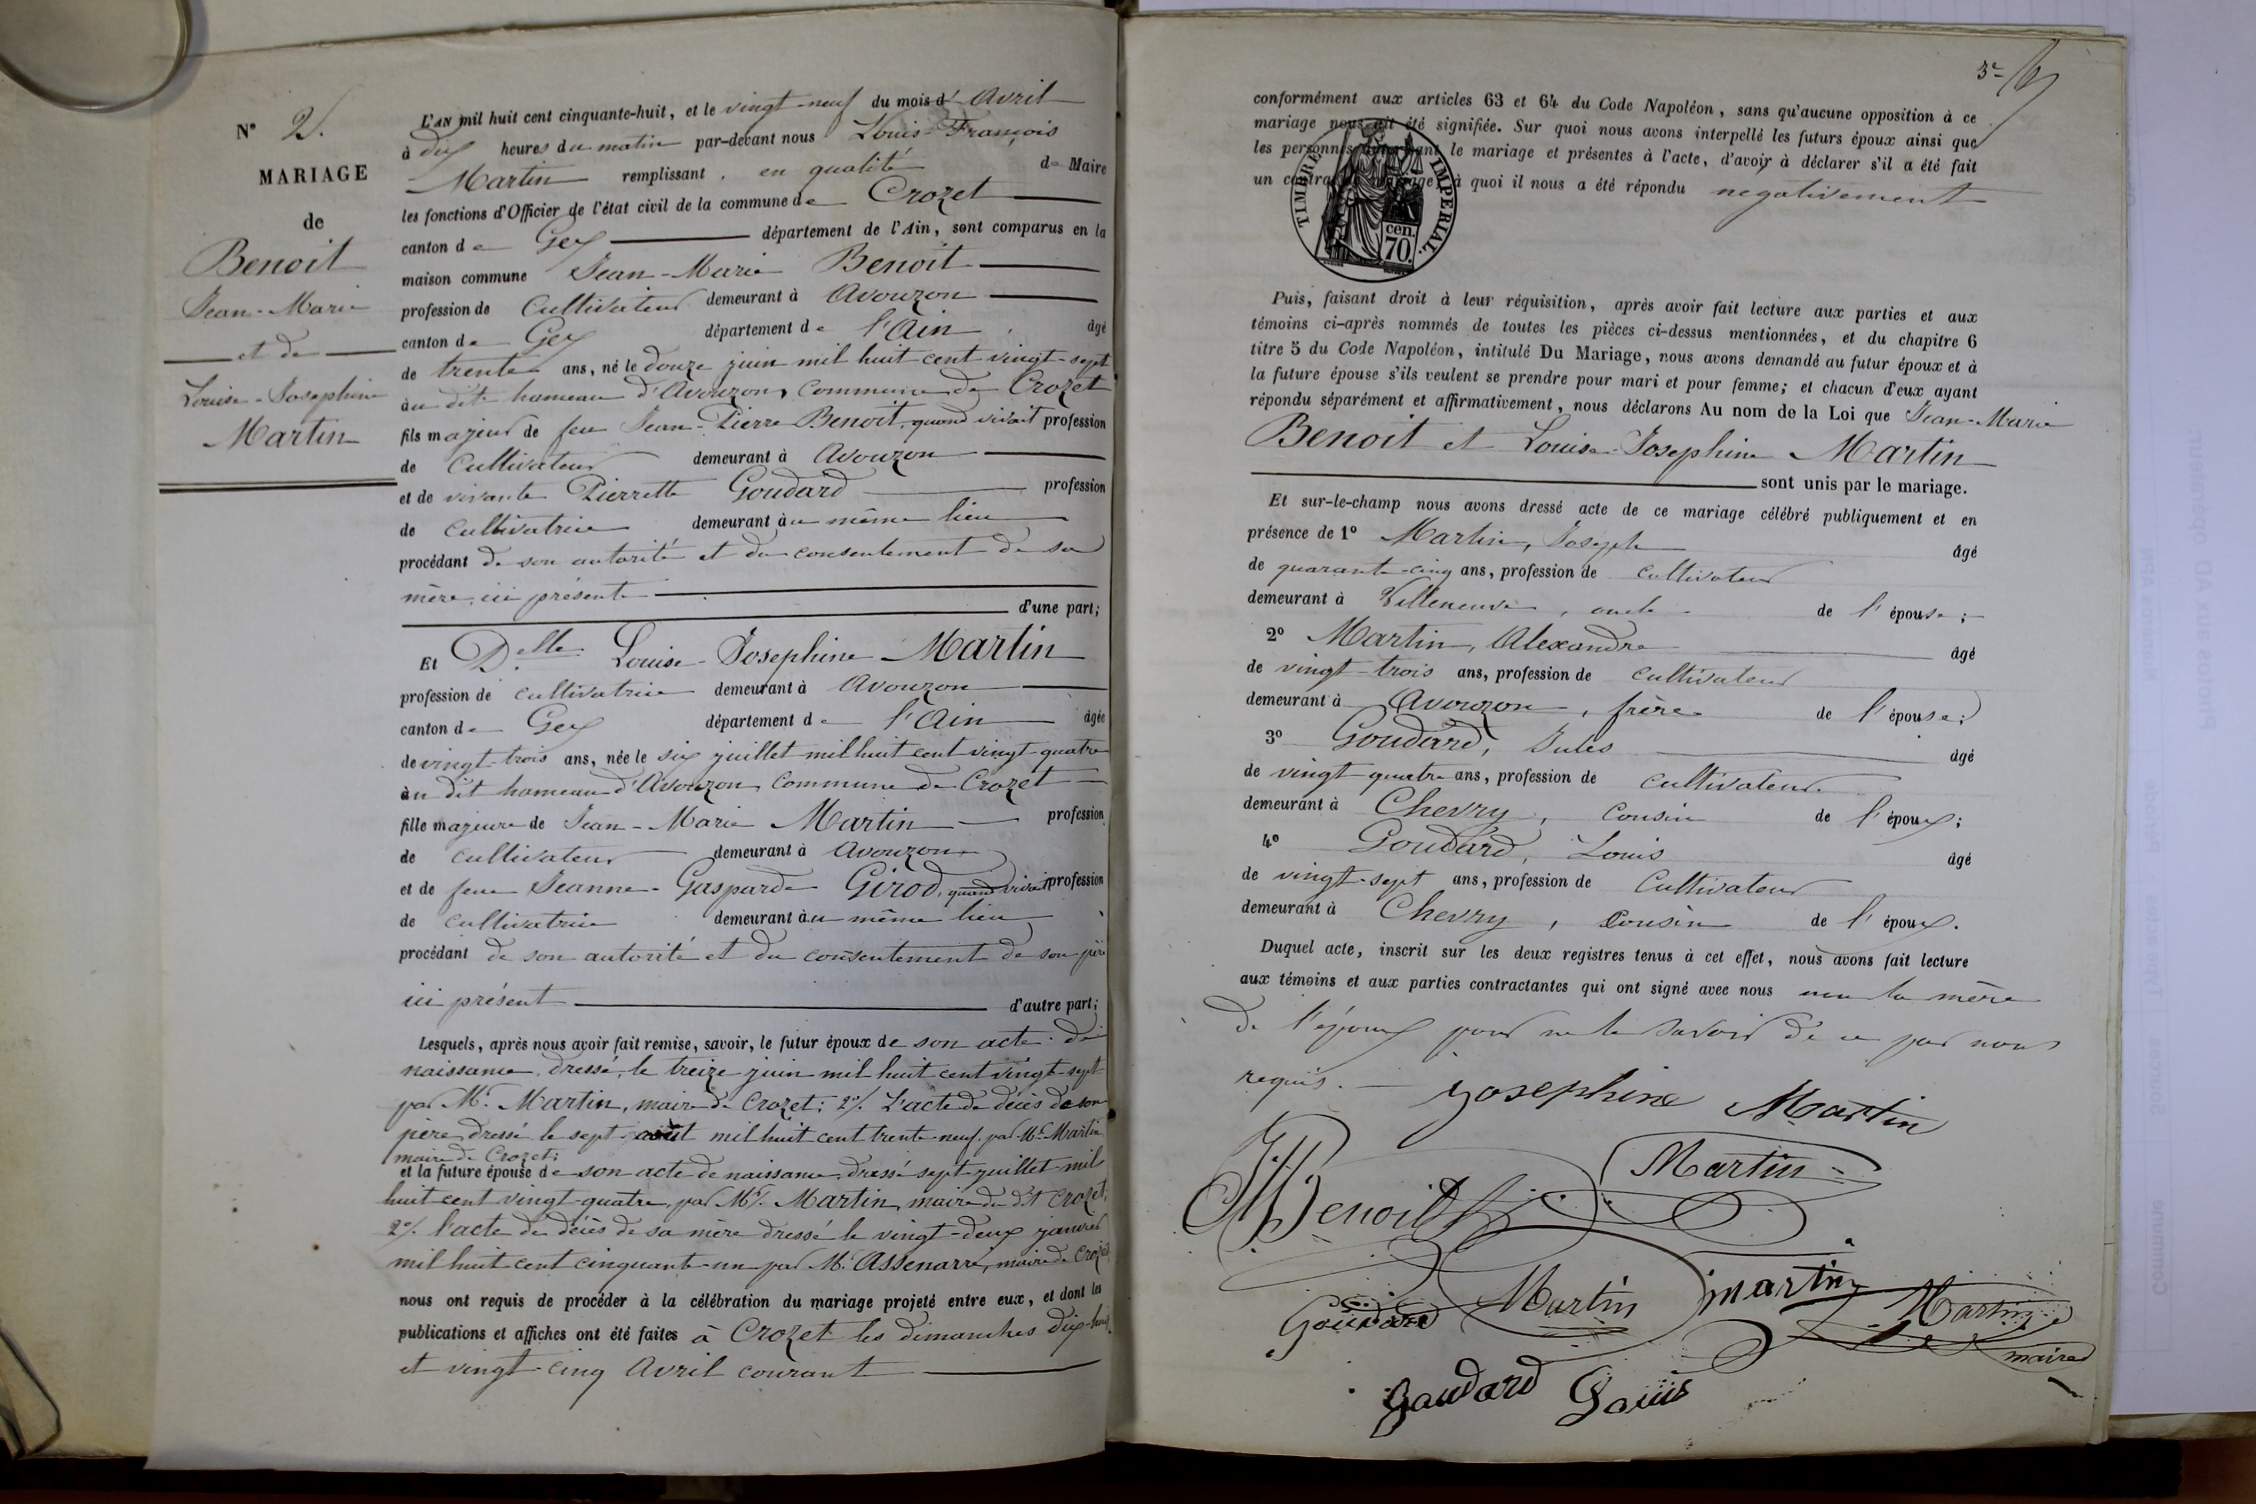 N° 2.
MARIAGE
de
Benoit
Jean-Marie
et de
Louise-Josephine
Martin
L'AN mil huit cent cinquante-huit, et le vingt-neuf du mois d'Avril
à dix heures du matin par-devant nous Louis-François
Martin remplissant en qualité de Maire
les fonctions d'Officier de l'état civil de la commune de Crozet
canton de Gex département de l'Ain, sont comparus en la
maison commune Jean-Marie Benoit
profession de Cultivateur demeurant à Avouzon
canton de Gex département de l'Ain, âgé
de trente ans, né le douze juin mil huit cent vingt-sept
au dit hameau d'Avouzon, commune de Crozet
fils majeur de feu Jean-Pierre Benoit, quand vivait profession
de Cultivateur demeurant à Avouzon
et de vivante Pierrette Goudard profession
de cultivatrice demeurant au même lieu
procédant de son autorité et du consentement de sa
mère ici présente
d'une part;
Et Delle Louise-Josephine Martin
profession de cultivatrice demeurant à Avouzon
canton de Gex département de l'Ain âgée
de vingt-trois ans, née le six juillet mil huit cent vingt-quatre
au dit hameau d'Avouzon, commune de Crozet
fille majeure de Jean-Marie Martin profession
de cultivateur demeurant à Avouzon
et de feue Jeanne-Gasparde Girod, quand vivait profession
de cultivatrice demeurant au même lieu
procédant de son autorité et du consentement de son père
ici présent d'autre part;
Lesquels, après nous avoir fait remise, savoir, le futur époux de son acte de
naissance dressé le treize juin mil huit cent vingt-sept
par Mr. Martin, maire de Crozet; 2°/. L'acte de décès de son
père dressé le sept août mil huit cent trente-neuf par Mr. Martin
maire de Crozet;
et la future épouse de son acte de naissance dressé sept juillet mil
huit cent vingt-quatre, par Mr. Martin, maire du dit Crozet,
2°/. l'acte de décès de sa mère dressé le vingt-deux janvier
mil huit cent cinquante-un par Mr. Assenarre, maire de Crozet
nous ont requis de procéder à la célébration du mariage projeté entre eux, et dont les
publications et affiches ont été faites à Crozet les dimanches dix-huit
et vingt-cinq Avril courant
3e
conformément aux articles 63 et 64 du Code Napoléon, sans qu'aucune opposition à ce
mariage nous ait été signifiée. Sur quoi nous avons interpellé les futurs époux ainsi que
les personnes autorisant le mariage et présentes à l'acte, d'avoir à déclarer s'il a été fait
un contrat de mariage, à quoi il nous a été répondu negativement
TIMBRE IMPERIAL.
70. cen.
Puis, faisant droit à leur réquisition, après avoir fait lecture aux parties et aux
témoins ci-après nommés de toutes les pièces ci-dessus mentionnées, et du chapitre 6
titre 5 du Code Napoléon, intitulé Du Mariage, nous avons demandé au futur époux et à
la future épouse s'ils veulent se prendre pour mari et pour femme; et chacun d'eux ayant
répondu séparément et affirmativement, nous déclarons Au nom de la Loi que Jean-Marie
Benoit et Louise-Josephine Martin
sont unis par le mariage.
Et sur-le-champ nous avons dressé acte de ce mariage célébré publiquement et en
présence de 1° Martin, Joseph âgé
de quarante-cinq ans, profession de cultivateur
demeurant à Villeneuve, oncle de l'épouse;
2° Martin, Alexandre âgé
de vingt-trois ans, profession de cultivateur
demeurant à Avouzon, frère de l'épouse;
3° Goudard, Jules âgé
de vingt-quatre ans, profession de cultivateur
demeurant à Chevry, cousin de l'époux;
4° Goudard, Louis âgé
de vingt-sept ans, profession de Cultivateur
demeurant à Chevry, Cousin de l'époux.
Duquel acte, inscrit sur les deux registres tenus à cet effet, nous avons fait lecture
aux témoins et aux parties contractantes qui ont signé avec nous non la mère
de l'époux pour ne le savoir de ce par nous
requis.
Josephine Martin
Martin
JMBenoit
Goudard
Martin
martin
Martin
maire
Goudard Louis